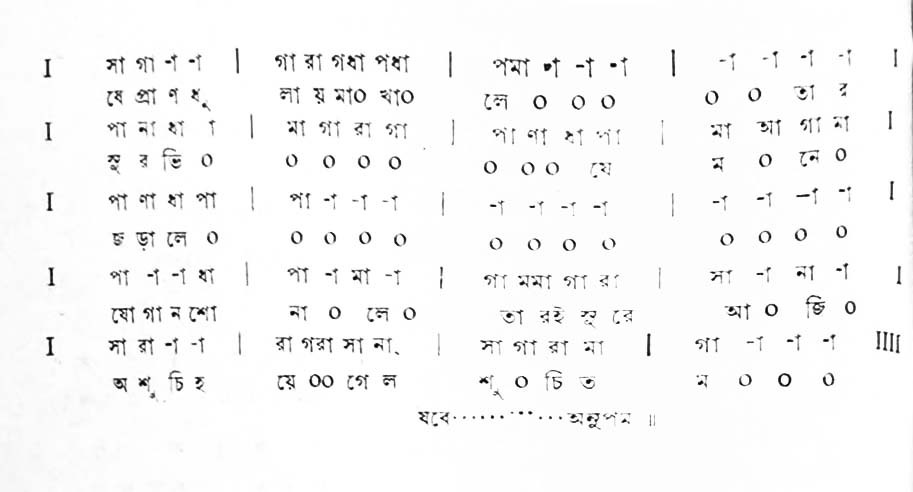 I সা গা -া -া | গা রা গধা পধা | পমা -া -া -া | -া -া -া -া I
যে প্রা ণ ধূ লা য় মা০ খা০ লে ০ ০ ০ ০ ০ তা র
I পা না ধা া | মা গা রা গা | পা ণা ধা পা | মা আ গা মা I
সু র ভি ০ ০ ০ ০ ০ ০ ০ ০ যে ম ০ নে ০
I পা ণা ধা পা | পা -া -া -া | -া -া -া -া | -া -া -া -া I
ছ ড়া লে ০ ০ ০ ০ ০ ০ ০ ০ ০ ০ ০ ০ ০
I পা -া -া ধা | পা -া মা -া | গা মমা গা রা | সা -া না -া I
যো গা ন শো না ০ লে ০ তা রই সু রে আ ০ জি ০
I সা রা -া -া | রা গরা সা না্ | সা গা রা মা | গা -া -া -া IIII
অ শু চি হ য়ে ০০ গে ল শু ০ চি ত ম ০ ০ ০
যবে············অনুপম ॥